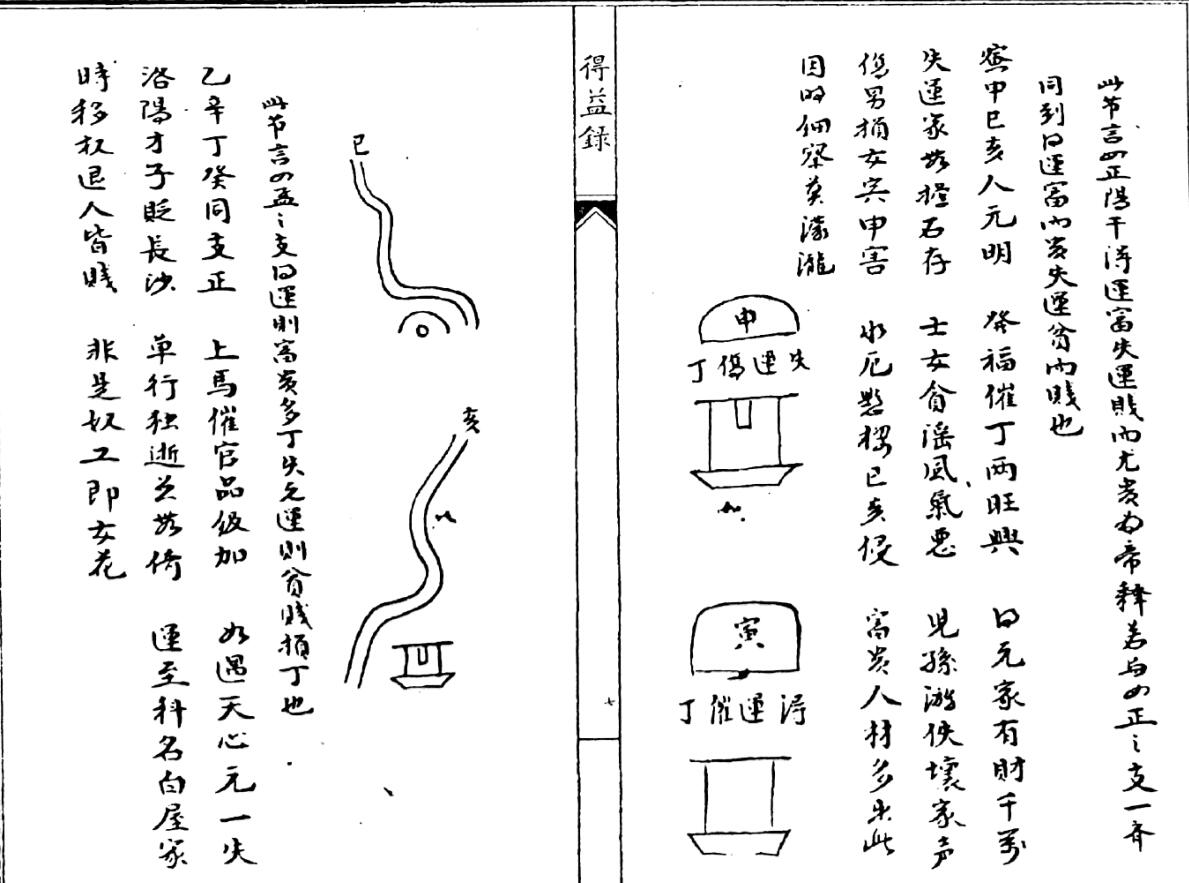 此节言四正陽干得運富失運賤而尤貴为帝释若与四正之支一齐
同到日運富而貴失運貧而賤也
寅申巳亥人元明 發福催丁两旺興 日元家有財千万
失運家无担石存 士女貪滛風氣悪 児孫游俠壞家声
傷男損女寅申害 水厄 巳亥侵 富貴人材多出此
因时细察莫濛瀧
申
失運傷丁
水
寅
得運催丁
得益錄
巳
亥
水
此节言四孟之支日運則富貴多丁失元運則貧賤損丁也
乙辛丁癸同支正 上馬催官品級加 如遇天心元一失
洛陽才子貶長沙 单行独逝 无倚 運至科名白屋家
時移权退人皆賤 非是奴工即女花